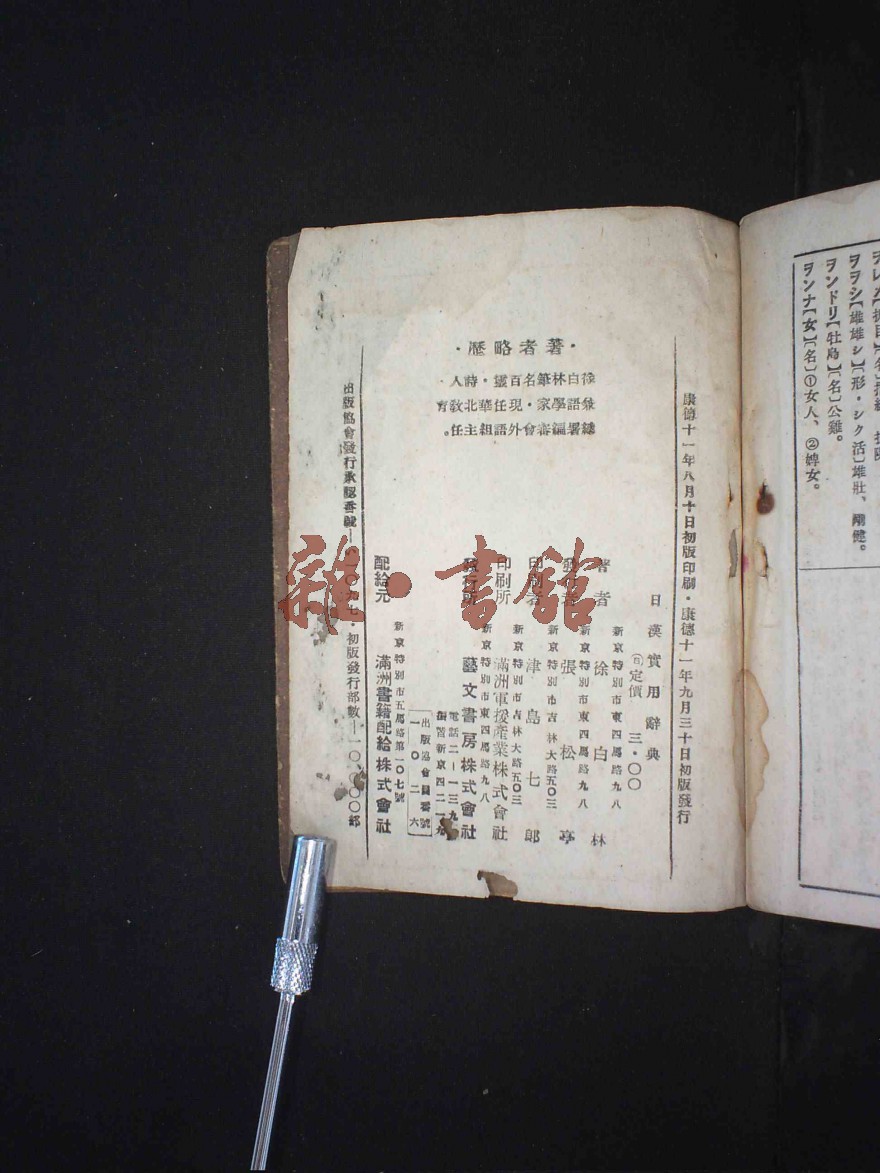 ヲレメ
ヲヲシ【雄雄シ】【形・シク活】雄壯、剛健。
ヲンドリ【牡鳥】【名】公雞。
ヲンナ【女】【名】①女人、②婢女。
康德十一年八月十日初版印刷・康德十一年九月三十日初版發行
・著者略歷・
徐白林筆名百靈・詩人・
兼語學家・現任華北敎育
總署編審會外語組主任。
日漢實用辭典
定價 三・〇〇
新京特別市東四馬路九八
著者 徐白林
新京特別市東四馬路九八
發行者 張松亭
新京特別市吉林大路五〇三
印刷者 津島七郎
新京特別市吉林大路五〇三
印刷所 滿洲軍援產業株式會社
新京特別市東四馬路九八
發行所 藝文書房株式會社
電話二-一三九
新京四二一九
出版協會員番號
一〇二六
新京特別市五馬路第一〇七號
配給元 滿洲書籍配給株式會社
出版協會發行承認番號 ・初版發行部數-一〇、〇〇〇部
雜・書館